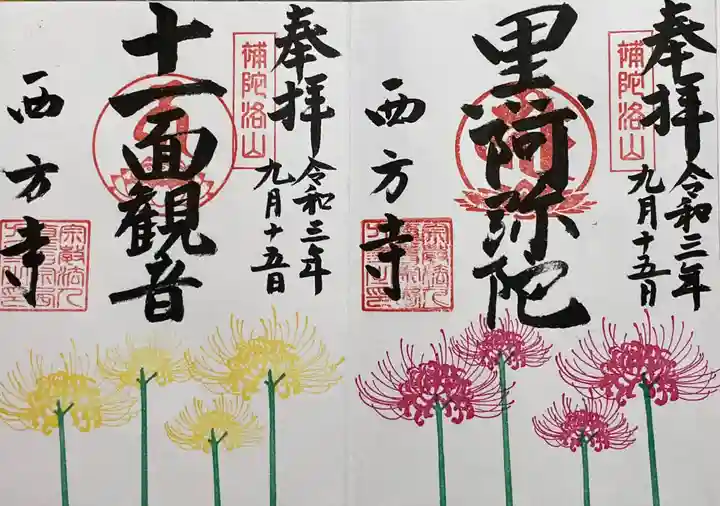 奉拝
令和三年
九月十五日
補陀洛山
里阿弥陀
西方寺
奉拝
令和三年
九月十五日
補陀洛山
十一面観音
西方寺